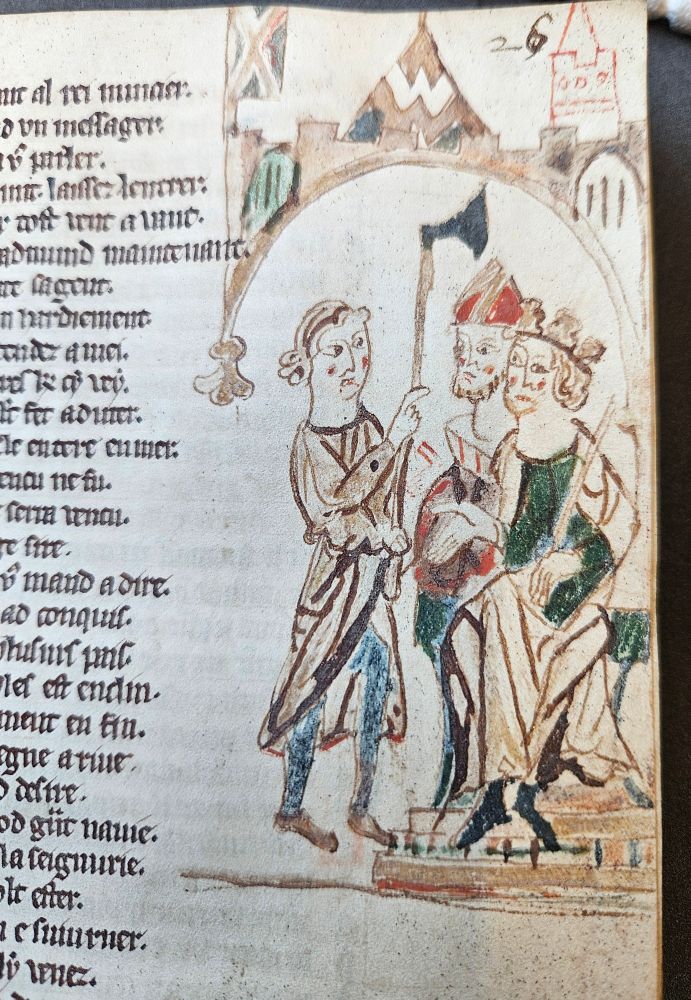 26
nt al rei nuncier.
d vn messager.
a ẏ parler.
unt. laissez lentrer.
r tost vent a vant.
admund maintenant.
te sagent.
n hardiement.
tendez a mei.
res ke cẏ veẏ.
st fet a duter.
le entere en mer.
encu ne fu.
serra vencu.
ge sire.
ẏ mand a dire.
ad conquis.
pais.
les est enclin.
ment en fin.
egne ariue.
desire.
od gñt nauie.
la seignurie.
olt ester.
n e suiurner.
ẏ venez.